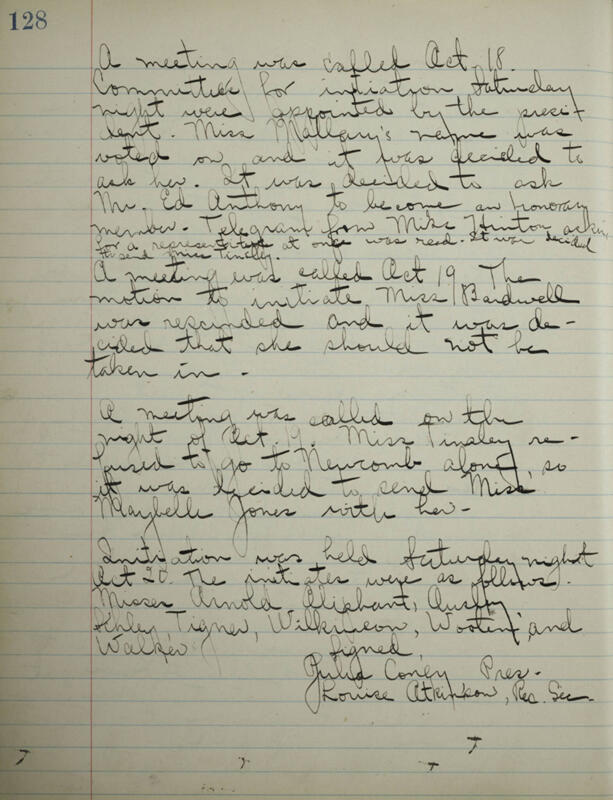 128
A meeting was called Oct. 18.
Committees for initiation Saturday
night were appointed by the presi-
dent. Miss Mallary's name was
voted on and it was decided to
ask her. It was decided to ask
Mr. Ed Anthony to become an honorary
member. Telegram from Miss Hinton asking
for a representative at once was read. It was decided
to send Miss Tinsley.
A meeting was called Oct 19. The
motion to initiate Miss Bardwell
was rescinded and it was de-
cided that she should not be
taken in.
A meeting was called on the
night of Oct. 19. Miss Tinsley re-
fused to go to Newcomb alone, so
it was decided to send Miss
Maybelle Jones with her-
Initiation was held Saturday night
Oct 20. The initiates were as follows.
Misses Arnold, Oliphant,
Tigner, Wilkinson, Wooten, and
Walker.
Signed,
Julia Coney Pres.
Louise Atkinson, Rec. Sec.